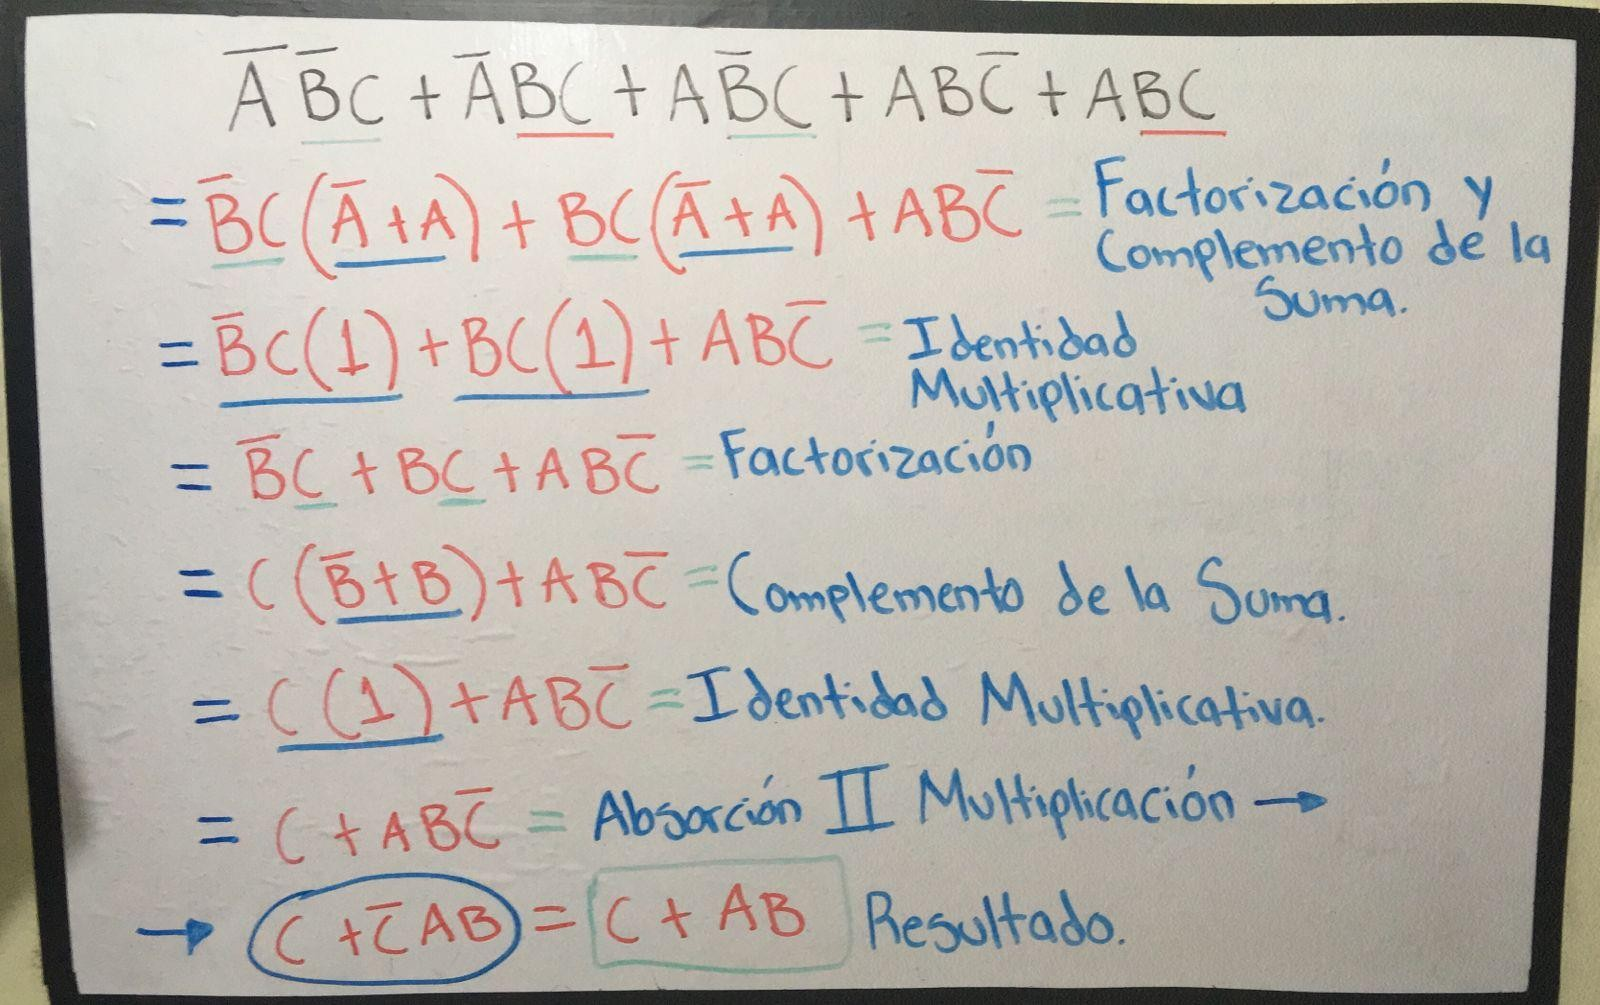 A̅ B̅C + A̅BC + AB̅C + ABC̅ + ABC
= B̅C(A̅+A) + BC(A̅+A) + ABC̅ = Factorización y
Complemento de la
Suma.
= B̅C(1) + BC(1) + ABC̅ = Identidad
Multiplicativa
= B̅C + BC + ABC̅ = Factorización
= C(B̅+B) + ABC̅ = Complemento de la Suma.
= C(1) + ABC̅ = Identidad Multiplicativa.
= C + ABC̅ = Absorción II Multiplicación →
→ C + C̅AB = C + AB Resultado.